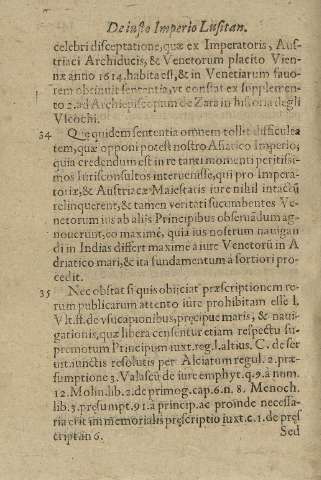 De iusto Imperio Lusitan.
celebri disceptatione, quæ ex Imperatoris, Aus-
triaci Archiducis, & Venetorum placito Vien-
næ anno 1614. habita est, & in Venetiarum fauo-
rem obtinuit sententia, vt constat ex supplemen-
to 2. ad Archiepiscopum de Zara in historia degli
Vscochi.
34 Quę quidem sententia omnem tollit difficulta
tem, quæ opponi potest nostro Asiatico Imperio;
quia credendum est in re tanti momenti peritissi-
mos Iurisconsultos interuenisse, qui pro Impera-
toriæ, & Austriacæ Maiestatis iure nihil intactū
relinquerent, & tamen veritati succumbentes Ve-
netorum ius ab aliis Principibus obseruādum ag-
nouerunt, eo maximè, quia ius nostrum nauigan
di in Indias differt maxime à iure Venetorū in A
driatico mari, & ita fundamentum à fortiori pro-
cedit.
35 Nec obstat si quis obijciat præscriptionem re-
rum publicarum attento iure prohibitam esse l.
Vlt. ff. de vsucapionibus, pręcipue maris, & naui-
gationis, quæ libera censentur etiam respectu su-
premorum Principum iuxt. reg. l. altius. C. de ser
uit. iunctis resolutis per Alciatum regul. 2. præ-
sumptione 3. Valascū de iure emphyt. q. 9. à num.
12. Molin. lib. 2. de primog. cap. 6. n. 8. Menoch.
lib. 3. pręsumpt. 91. à princip. ac proinde necessa-
ria erit immemorialis pręscriptio iuxt. c. 1. de pręs
criptan 6.
Sed